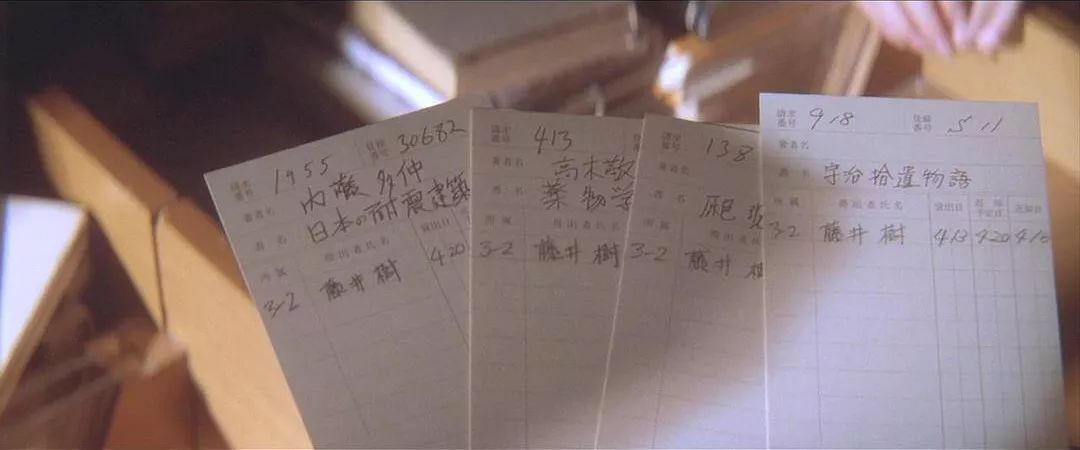 請求番号 1955 登録番号 30682
著者名 内藤 多仲
書名 日本の耐震建築
所属 貸出者氏名 貸出日
3-2 藤井 樹 420
請求番号 413
著者名 高木敬
書名 薬物学
所属 貸出者氏名
3-2 藤井 樹
請求番号 138
著者名
書名
所属 貸出者氏
3-2 藤井 樹
請求番号 918 登録番号 511
著者名
書名 宇治拾遺物語
所属 貸出者氏名 貸出日 返却予定日 返却日
3-2 藤井 樹 413 420